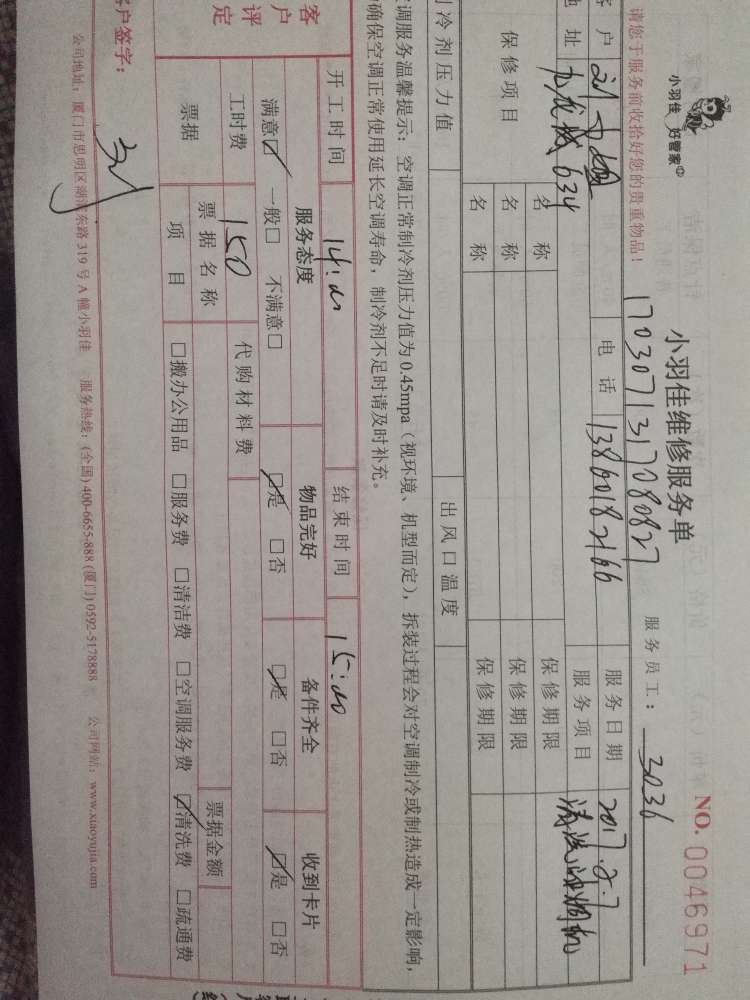 小羽佳 好管家
小羽佳维修服务单
NO. 0046971
1703071317080827
服务员工： 3036
请您于服务前收拾好您的贵重物品！
客 户 电 话 13860182166 服务日期 2017.8.7
地 址 九龙城 634 服务项目 清洗油烟机
保修项目 名 称 保修期限
名 称 保修期限
名 称 保修期限
制冷剂压力值 出风口温度
空调服务温馨提示：空调正常制冷剂压力值为0.45mpa（视环境、机型而定），拆装过程会对空调制冷或制热造成一定影响，
确保空调正常使用延长空调寿命，制冷剂不足时请及时补充。
开工时间 14:00 结束时间 15:00
客户评定 服务态度 物品完好 备件齐全 收到卡片
满意☑ 一般□ 不满意□ ☑是 □否 ☑是 □否 ☑是 □否
工时费 150 代购材料费
票据 票据名称 票据金额
项 目 □搬办公用品 □服务费 □清洁费 □空调服务费 ☑清洗费 □疏通费
客户签字： 刘
公司地址：厦门市思明区湖滨东路319号A幢小羽佳 服务热线：(全国) 400-6655-888 (厦门) 0592-5178888 公司网站：www.xiaoyujia.com